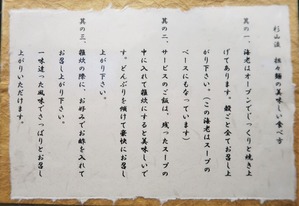 杉山流 担々麺の美味しい食べ方
其の一、海老はオーブンでじっくりと焼き上
げてあります。殻ごと全てお召し上
がり下さい。(この海老はスープの
ベースにもなっています)
其の二、サービスのご飯は、残ったスープの
中に入れて雑炊にすると美味しいで
す。どんぶりを傾けて豪快にお召し
上がり下さい。
其の三、雑炊の際に、お好みでお酢を入れて
お召し上がり下さい。
一味違った風味でさっぱりとお召し
上がりいただけます。